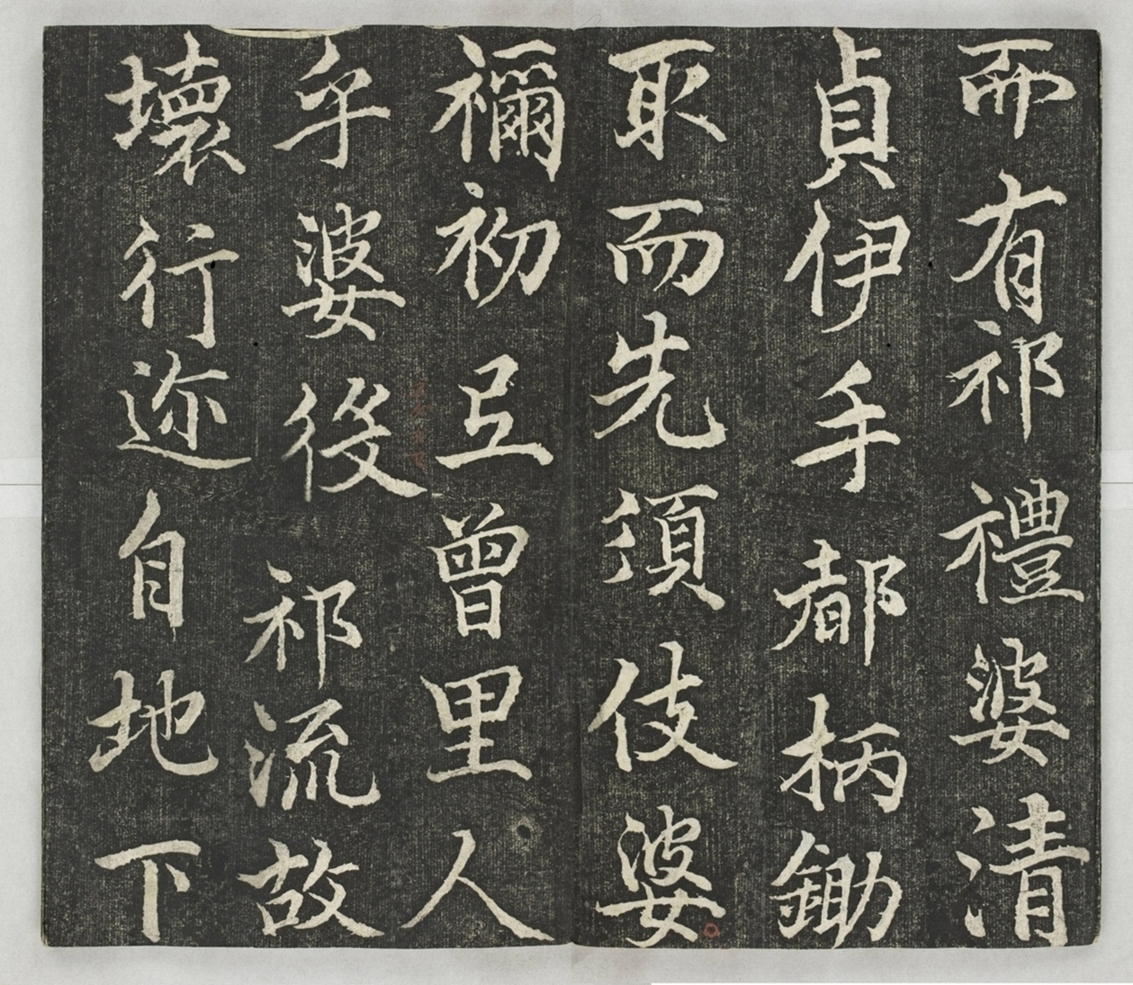 而有祁禮婆清
貞伊手都柄鋤
取而先須伎婆
禰初㠯曾里人
乎婆役祁流故
壞行迩自地下